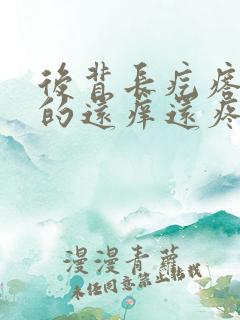 後背長疙瘩
的還痒還疼
漫漫青蘿
未經同意禁止轉載